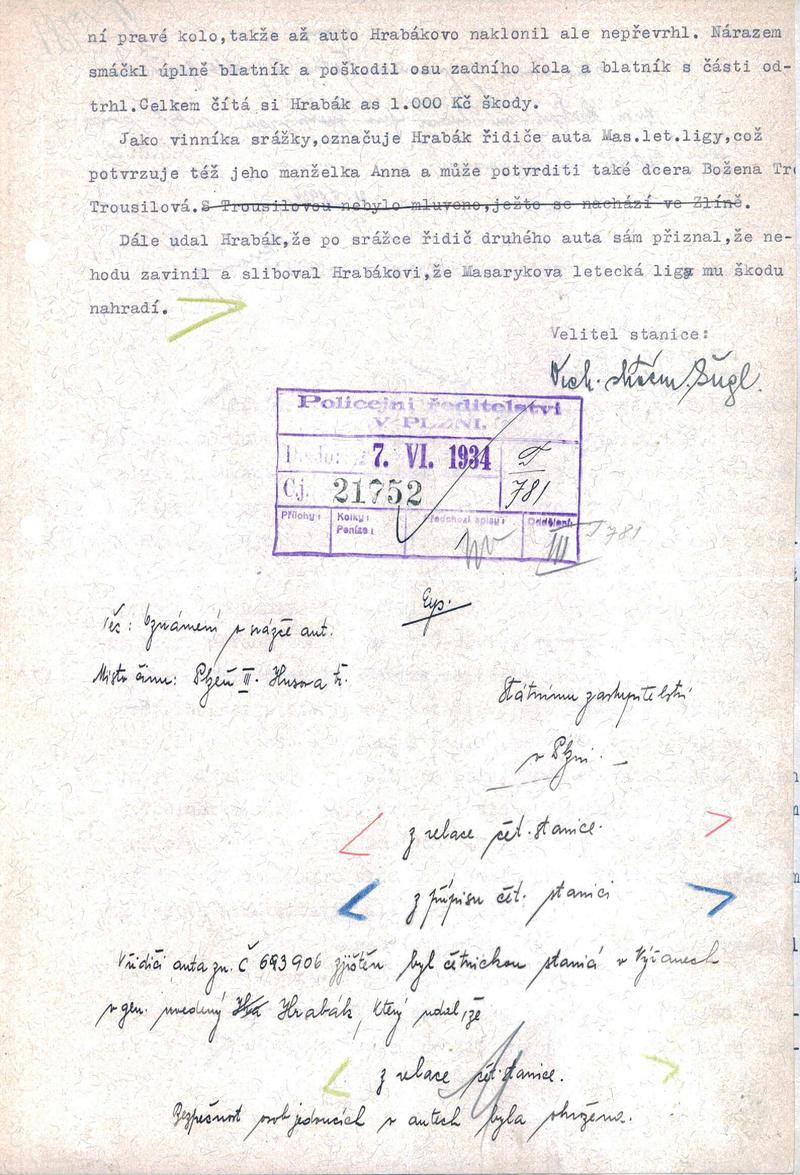 ní pravé kolo,takže až auto Hrabákovo naklonil ale nepřevrhl. Nárazem
smáčkl úplně blatník a poškodil osu zadního kola a blatník s části od-
trhl.Celkem čítá si Hrabák as 1.000 Kč škody.
Jako vinníka srážky,označuje Hrabák řidiče auta Mas.let.ligy,což
potvrzuje též jeho manželka Anna a může potvrditi také dcera Božena Tro
Trousilová.S Trousilovou nebylo mluveno,ježto se nachází ve Zlíně.
Dále udal Hrabák,že po srážce řidič druhého auta sám přiznal,že ne-
hodu zavinil a sliboval Hrabákovi,že Masarykova letecká liga mu škodu
nahradí.
Velitel stanice:
Vrch. strážm. Šúgl.
Policejní ředitelství
V PLZNI.
Došlo: 7. VI. 1934
T
781
Čj. 21752
Přílohy:
Kolky:
Peníze:
Předchozí spisy:
Oddělení:
III
T 781
Exp.
Věc: Oznámení o srážce aut.
Místo činu: Plzeň III. Husova tř.
Státnímu zastupitelství
v Plzni.
z relace čet. stanice.
z přípisu čet. stanici
Řidiči auta zn. Č 693906 zjištěn byl četnickou stanicí v Výšanech
v gen. uvedený Hrabák, který udal, že
z relace čet. stanice.
Bezpečnost osob jedoucích v autech byla ohrožena.